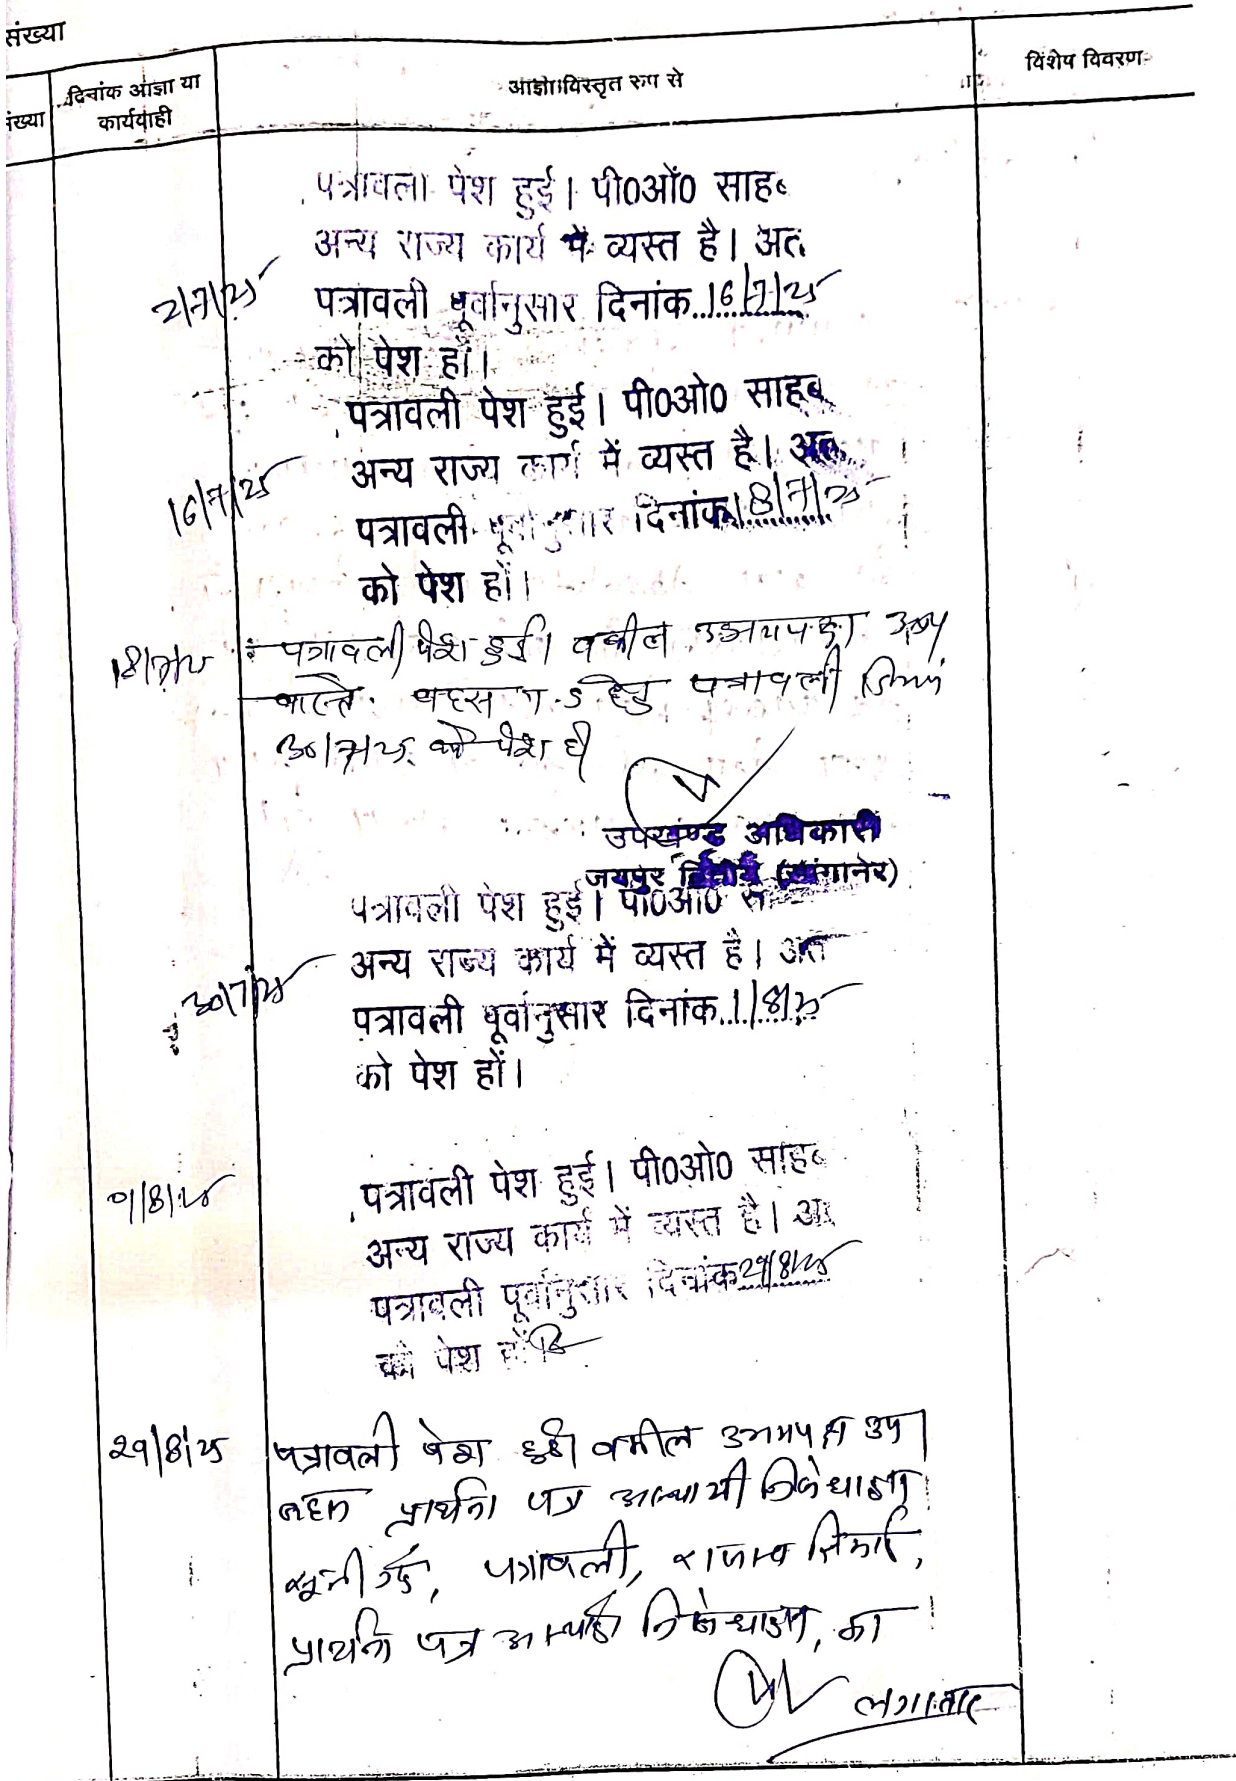 संख्या
संख्या
दिनांक आज्ञा या
कार्यवाही
आज्ञा विस्तृत रुप से
विशेष विवरण
पत्रावली पेश हुई। पी0ओ0 साहब
अन्य राज्य कार्य में व्यस्त है। अत
2/7/25
पत्रावली पूर्वानुसार दिनांक 16/7/25
को पेश हों।
पत्रावली पेश हुई। पी0ओ0 साहब
अन्य राज्य कार्य में व्यस्त है। अत
16/7/25
पत्रावली पूर्वानुसार दिनांक 18/7/25
को पेश हों।
18/7/25
पत्रावली पेश हुई। वकील उभयपक्ष उप
वास्ते बहस हेतु पत्रावली दिनांक
30/7/25 को पेश हो
उपखण्ड अधिकारी
जयपुर द्वितीय (सांगानेर)
पत्रावली पेश हुई। पी0ओ0 सा
अन्य राज्य कार्य में व्यस्त है। अत
30/7/25
पत्रावली पूर्वानुसार दिनांक 1/8/25
को पेश हों।
01/8/25
पत्रावली पेश हुई। पी0ओ0 साहब
अन्य राज्य कार्य में व्यस्त है। अ
पत्रावली पूर्वानुसार दिनांक 29/8/25
को पेश हों
29/8/25
पत्रावली पेश हुई। वकील उभयपक्ष उप।
बहस प्रार्थना पत्र अस्थायी निषेधाज्ञा
सूनी गई, पत्रावली, राजस्व रिकार्ड,
प्रार्थना पत्र अस्थाई निषेधाज्ञा, का
लगातार